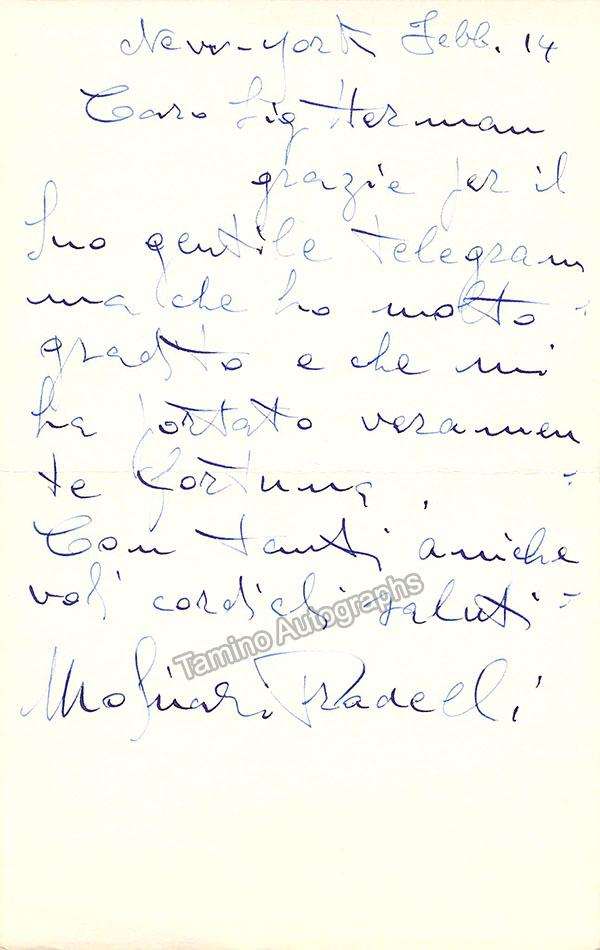 New-York Febb. 14
Caro Sig Herman
grazie per il
Suo gentile telegram
ma che ho molto -
gradito e che mi
ha portato veramen
te fortuna. =
Con tanti amiche
voli cordiali saluti =
Molinari Pradelli
Tamino Autographs